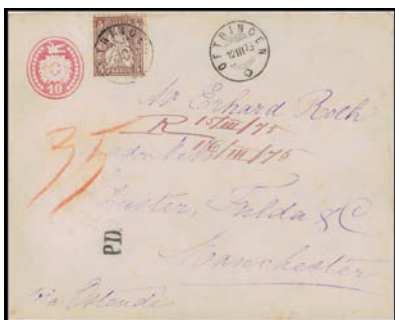 10
OFTRINGEN
12 III 75
Mr Erhard Roth
R 15/III/75
16/III/75
35
Huster, Fulda & C
P.D.
Manchester
via Ostende